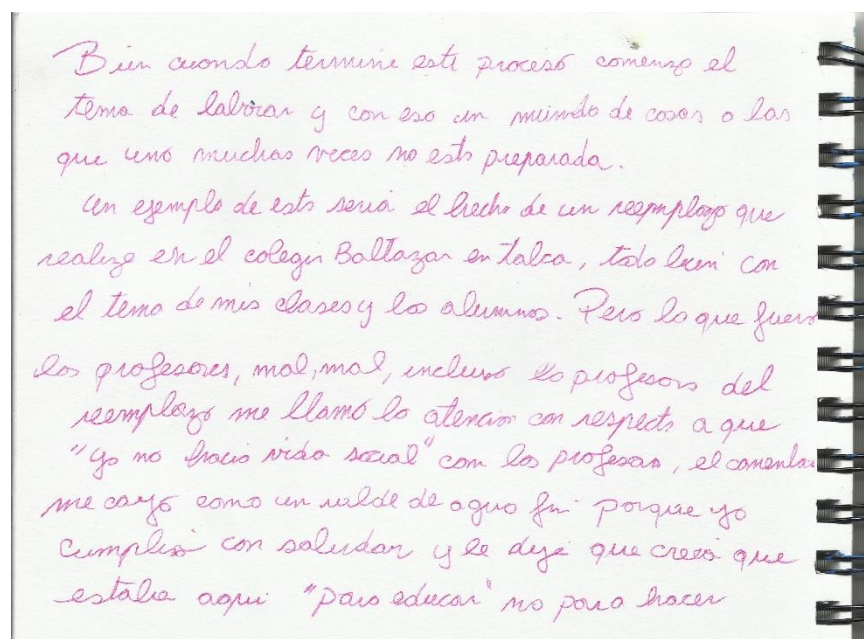 Bien cuando termine este proceso comenzo el
tema de laborar y con eso un mundo de cosas a las
que uno muchas veces no esta preparada.
Un ejemplo de esto seria el hecho de un reemplazo que
realize en el colegio Baltazar en talca, todo bien con
el tema de mis clases y los alumnos. Pero lo que fueron
los profesores, mal, mal, incluso la profesora del
reemplazo me llamó la atención con respecto a que
"yo no hacia vida social" con los profesores, el comentario
me cayó como un valde de agua fri porque yo
cumplia con saludar y le dije que creia que
estaba aqui "para educar" no para hacer